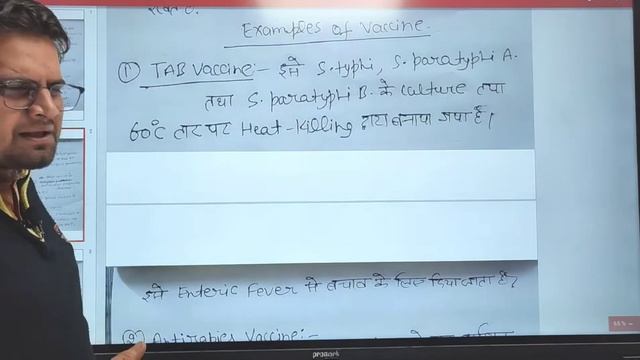 Examples of Vaccine.
① TAB Vaccine:- इसे S. typhi, S. paratyphi A.
तथा S. paratyphi B. के culture तथा
60°C ताप पर Heat-Killing द्वारा बनाया गया है।
इसे Enteric Fever से बचाव के लिए दिया जाता है।
② Antirabies Vaccine:-
promark